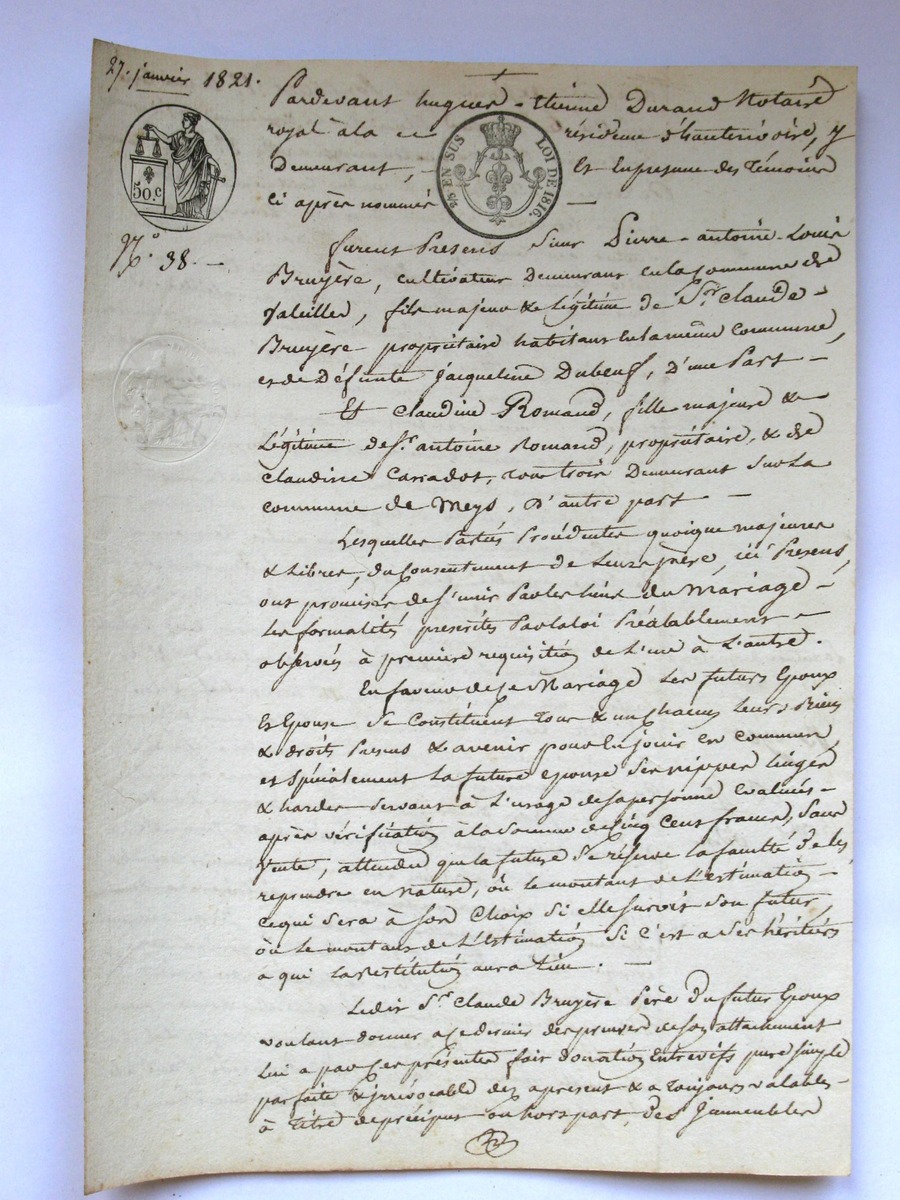 27. janvier 1821.
Pardevant hugues-Etienne Durand Notaire
royal à la résidence d'hauterivoire, y
Demeurant, Et En presence des Témoins
Ci après nommés
25 EN SUS LOI DE 1816.
50 c
N.° 38.
furent Presens Sieur Pierre-antoine-Louis
Bruyère, cultivateur Demeurant en la Commune de
valeilles, fils majeur & Légitime de Sr. Claude
Bruyère propriétaire habitant en la même Commune,
et de Défunte Jacqueline Dubeuf, D'une Part
Et Claudine Romand, fille majeure &
Légitime de Sr. antoine Romand, propriétaire, & de
Claudine Carradot, tous trois Demeurant Sur La
commune de Meys, D'autre part
Lesquelles Parties Procédentes quoique majeures
& Libres, du Consentement de Leurs père, ici Presens,
ont promis de s'unir Par les liens du Mariage
Les formalités prescrites Par la loi Préalablement
observés à première requisition de L'une à L'autre.
En faveur de Ce Mariage Les futurs Epoux
Et Epouse Se Constituent Tous & un Chacun Leurs Biens
& droits Presens & avenir pour En jouir en commun,
et Spécialement La future epouse Ses nippes linges
& hardes servant à L'usage de sa personne Evalués
après vérification à la Somme de Cinq Cent francs, Sans
Vente, attendu que la future Se réserve la faculté De les
reprendre en nature, ou le montant de L'estimation
ce qui sera à Son Choix Si elle survit Son futur,
ou Le montant de L'Estimation Si C'est a Ses héritiers
a qui La restitution aura Lieu.
Ledit Sr. Claude Bruyère Père Du futur Epoux
voulant donner a Ce dernier des preuves de Son attachement
Lui a par Ces présentes fait donation Entrevifs pure Simple
parfaite & irrévocable dès apresent & a Toujours valable
à Titre de précipus ou hors part, Des Immeubles